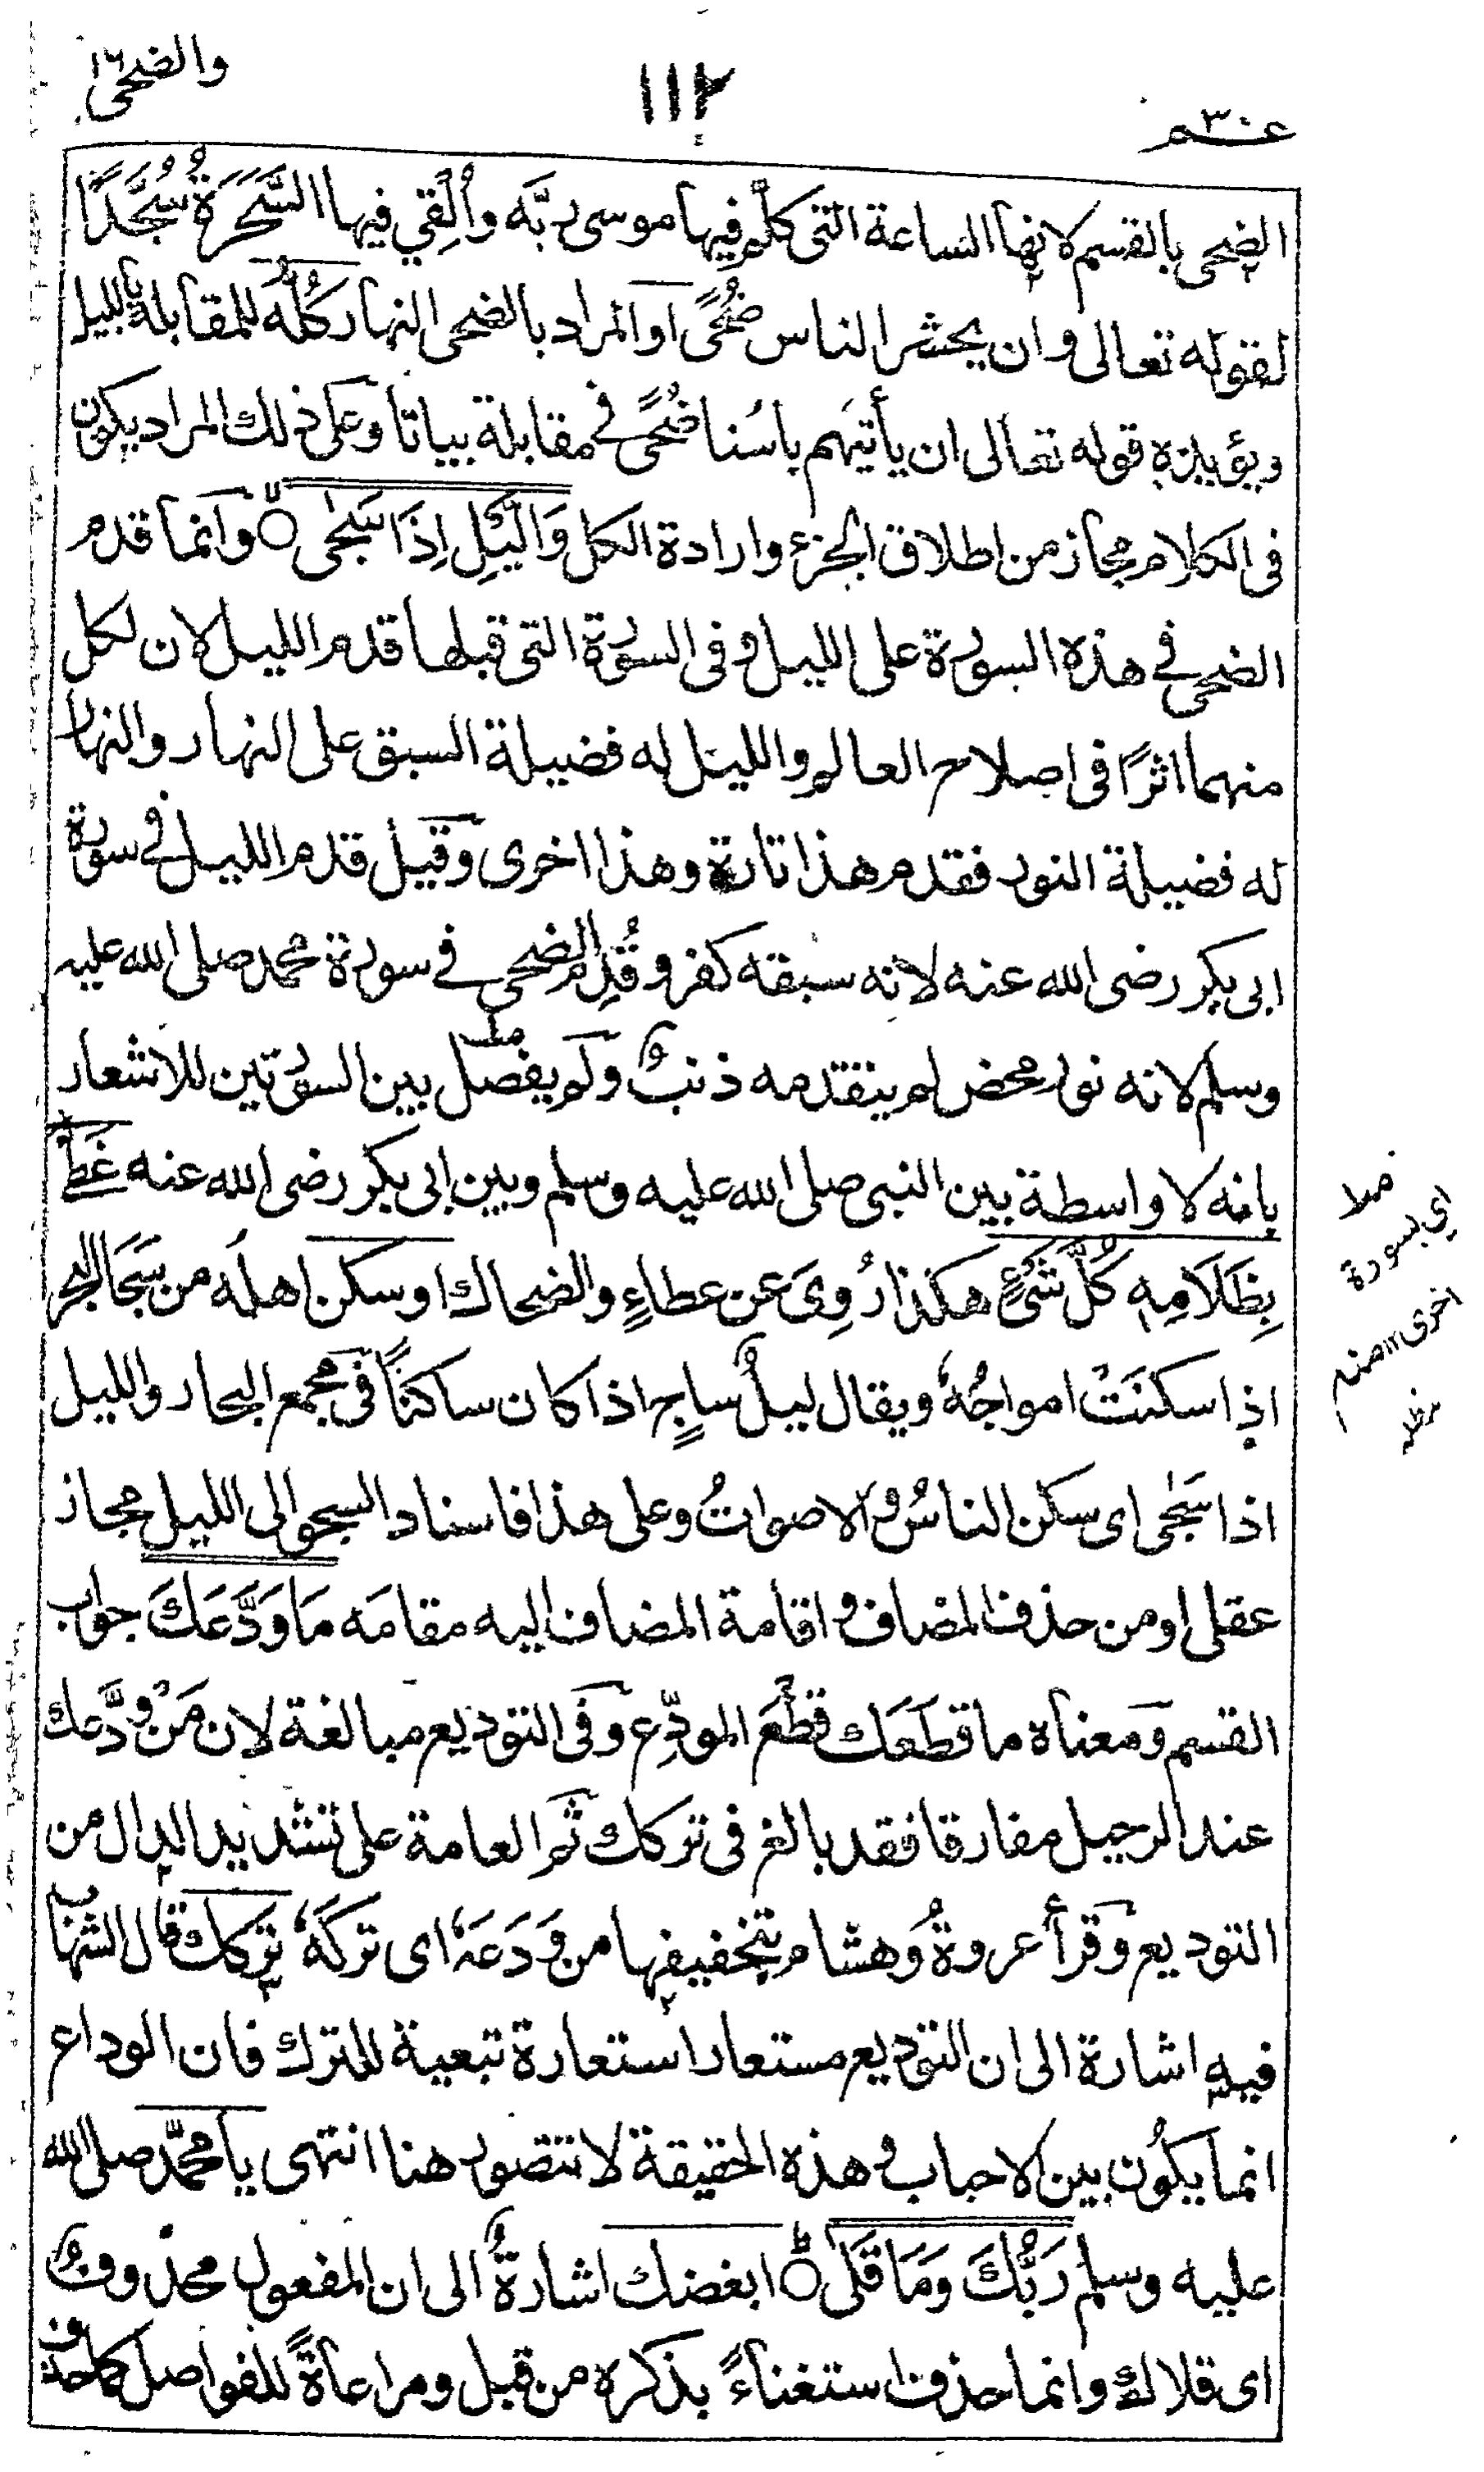 عم ٣٠
١١٢
والضحى
الضحى بالقسم لانها الساعة التى كلم فيها موسى ربَّه وأُلْقِي فيها السَّحَرَةُ سُجَّدًا
لقوله تعالى وان يحشر الناس ضُحًى أو المراد بالضحى النهار كُلُّه للمقابلة بالليل
ويؤيده قوله تعالى ان يأتيَهم باسُنا ضُحًى في مقابلة بياتا وعلى ذلك المراد يكون
فى الكلام مجاز من اطلاق الجزء وارادة الكل وَالَّيْلِ اِذَا سَجٰى ۝ وانما قدم
الضحى في هذه السورة على الليل وفى السورة التى قبلها قدم الليل لان لكل
منهما اثرًا فى اصلاح العالم والليل له فضيلة السبق على النهار والنهار
له فضيلة النور فقدم هذا تارة وهذا اخرى وقيل قدم الليل في سورة
ابى بكر رضى الله عنه لانه سبقه كفر وقُدِم الضحى في سورة محمد صلى الله عليه
وسلم لانه نور محض لم يتقدمه ذنبٌ ولم يفصل بين السورتين للاشعار
بانه لا واسطة بين النبى صلى الله عليه وسلم وبين ابى بكر رضى الله عنه غَطّٰى
بِظَلَامِهٖ كُلَّ شَىْءٍ هكذا رُوِىَ عن عطاءٍ والضحاك او سكن اهلُه من سَجَا البحر
اذا سكنَتْ امواجُهٗ ويقال ليلٌ ساجٍ اذا كان ساكنًا فى مجمع البحار والليل
اذا سَجٰى اى سكن الناسُ والاصواتُ وعلى هذا فاسناد السجو الى الليل مجاز
عقلى او من حذف المضاف واقامة المضاف اليه مقامَه مَا وَدَّعَكَ جواب
القسم ومعناه ما قطعَك قطْعَ المودِّع وفى التوديع مبالغة لان مَنْ ودَّعك
عند الرحيل مفارقا فقد بالغ فى تركك ثم العامة على تشديد الدال من
التوديع وقرأ عروةُ وهشام بتخفيفها من وَدَعَهٗ اى تركَهٗ تركك قال الشهاب
فيه اشارة الى ان التوديع مستعار استعارة تبعية للترك فان الوداع
انما يكُون بين الاحباب وهذه الحقيقة لا تتصور هنا انتهى يا محمَّد صلى الله
عليه وسلم رَبُّكَ وَمَا قَلٰى ۝ ابغضك اشارةٌ الى ان المفعول محذوفٌ
اى قلاك وانما حذف استغناءً بذكره من قبل ومراعاةً للفواصل كما حذف
اي بسورة
اخرى ١٢ منه